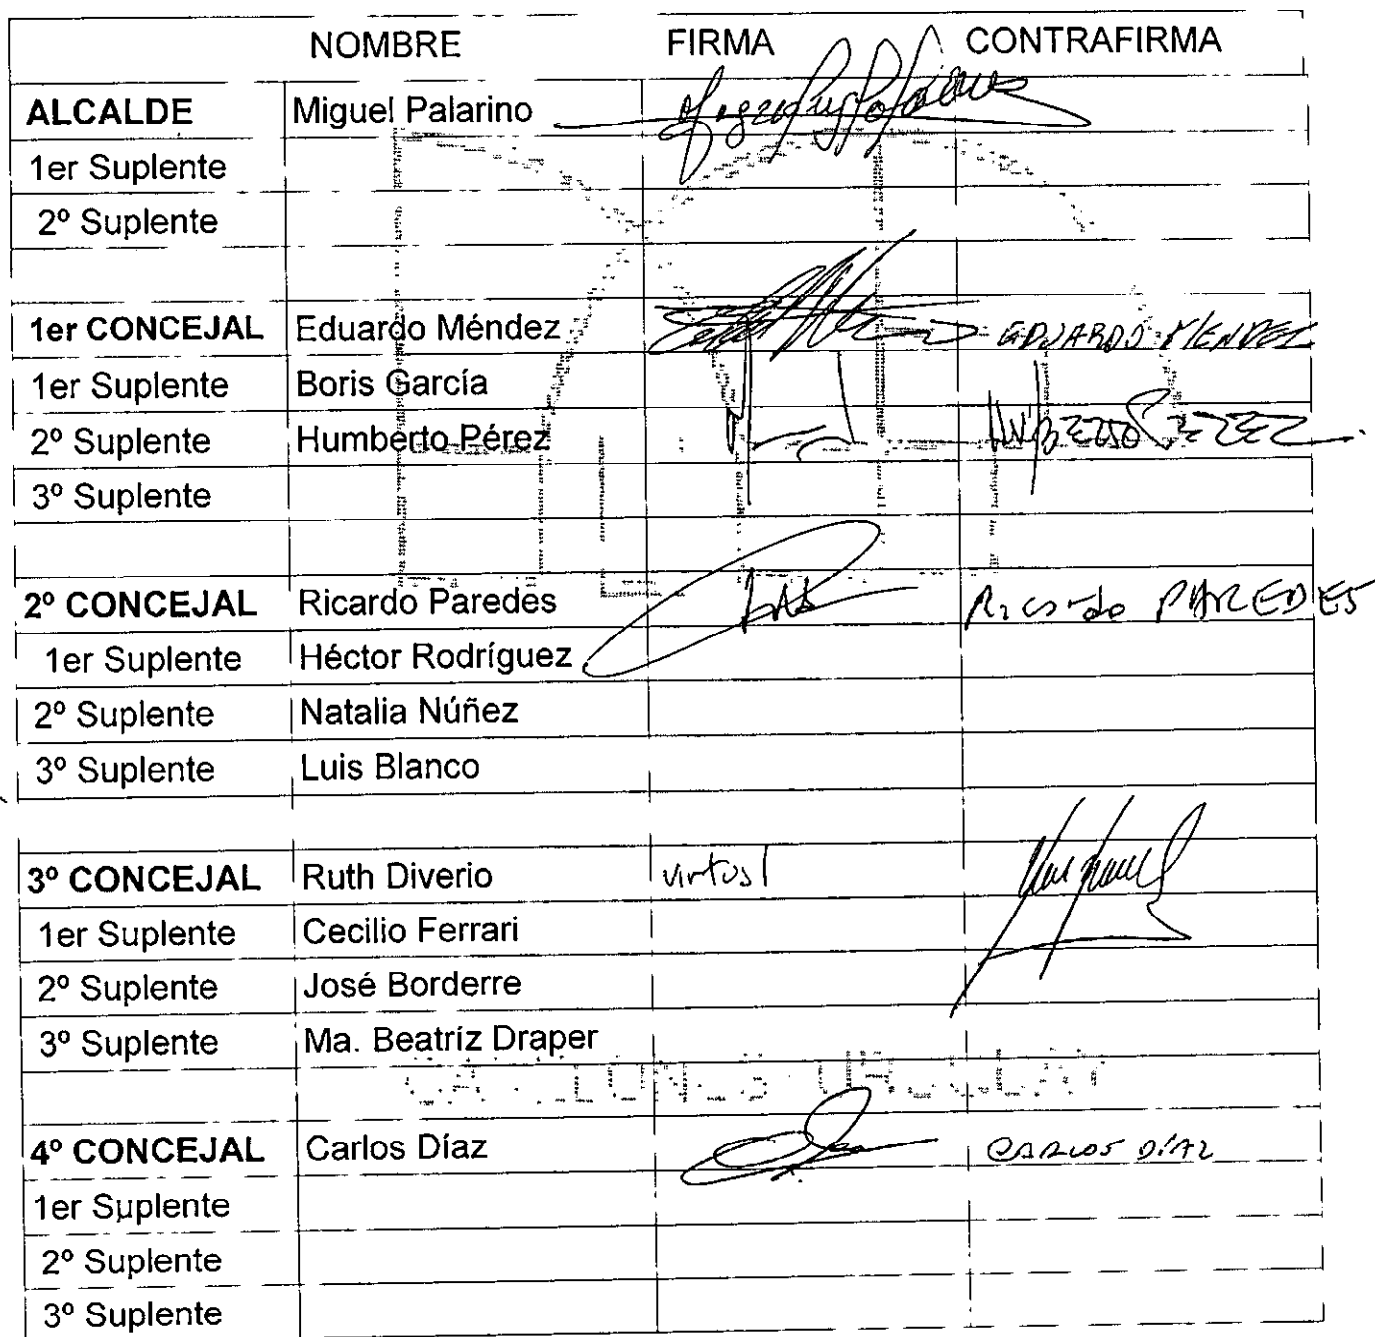 NOMBRE FIRMA CONTRAFIRMA
ALCALDE Miguel Palarino
1er Suplente
2º Suplente
1er CONCEJAL Eduardo Méndez EDUARDO MENDEZ
1er Suplente Boris García
2º Suplente Humberto Pérez
3º Suplente
2º CONCEJAL Ricardo Paredes Ricardo PAREDES
1er Suplente Héctor Rodríguez
2º Suplente Natalia Núñez
3º Suplente Luis Blanco
3º CONCEJAL Ruth Diverio virtual
1er Suplente Cecilio Ferrari
2º Suplente José Borderre
3º Suplente Ma. Beatríz Draper
4º CONCEJAL Carlos Díaz CARLOS DÍAZ
1er Suplente
2º Suplente
3º Suplente